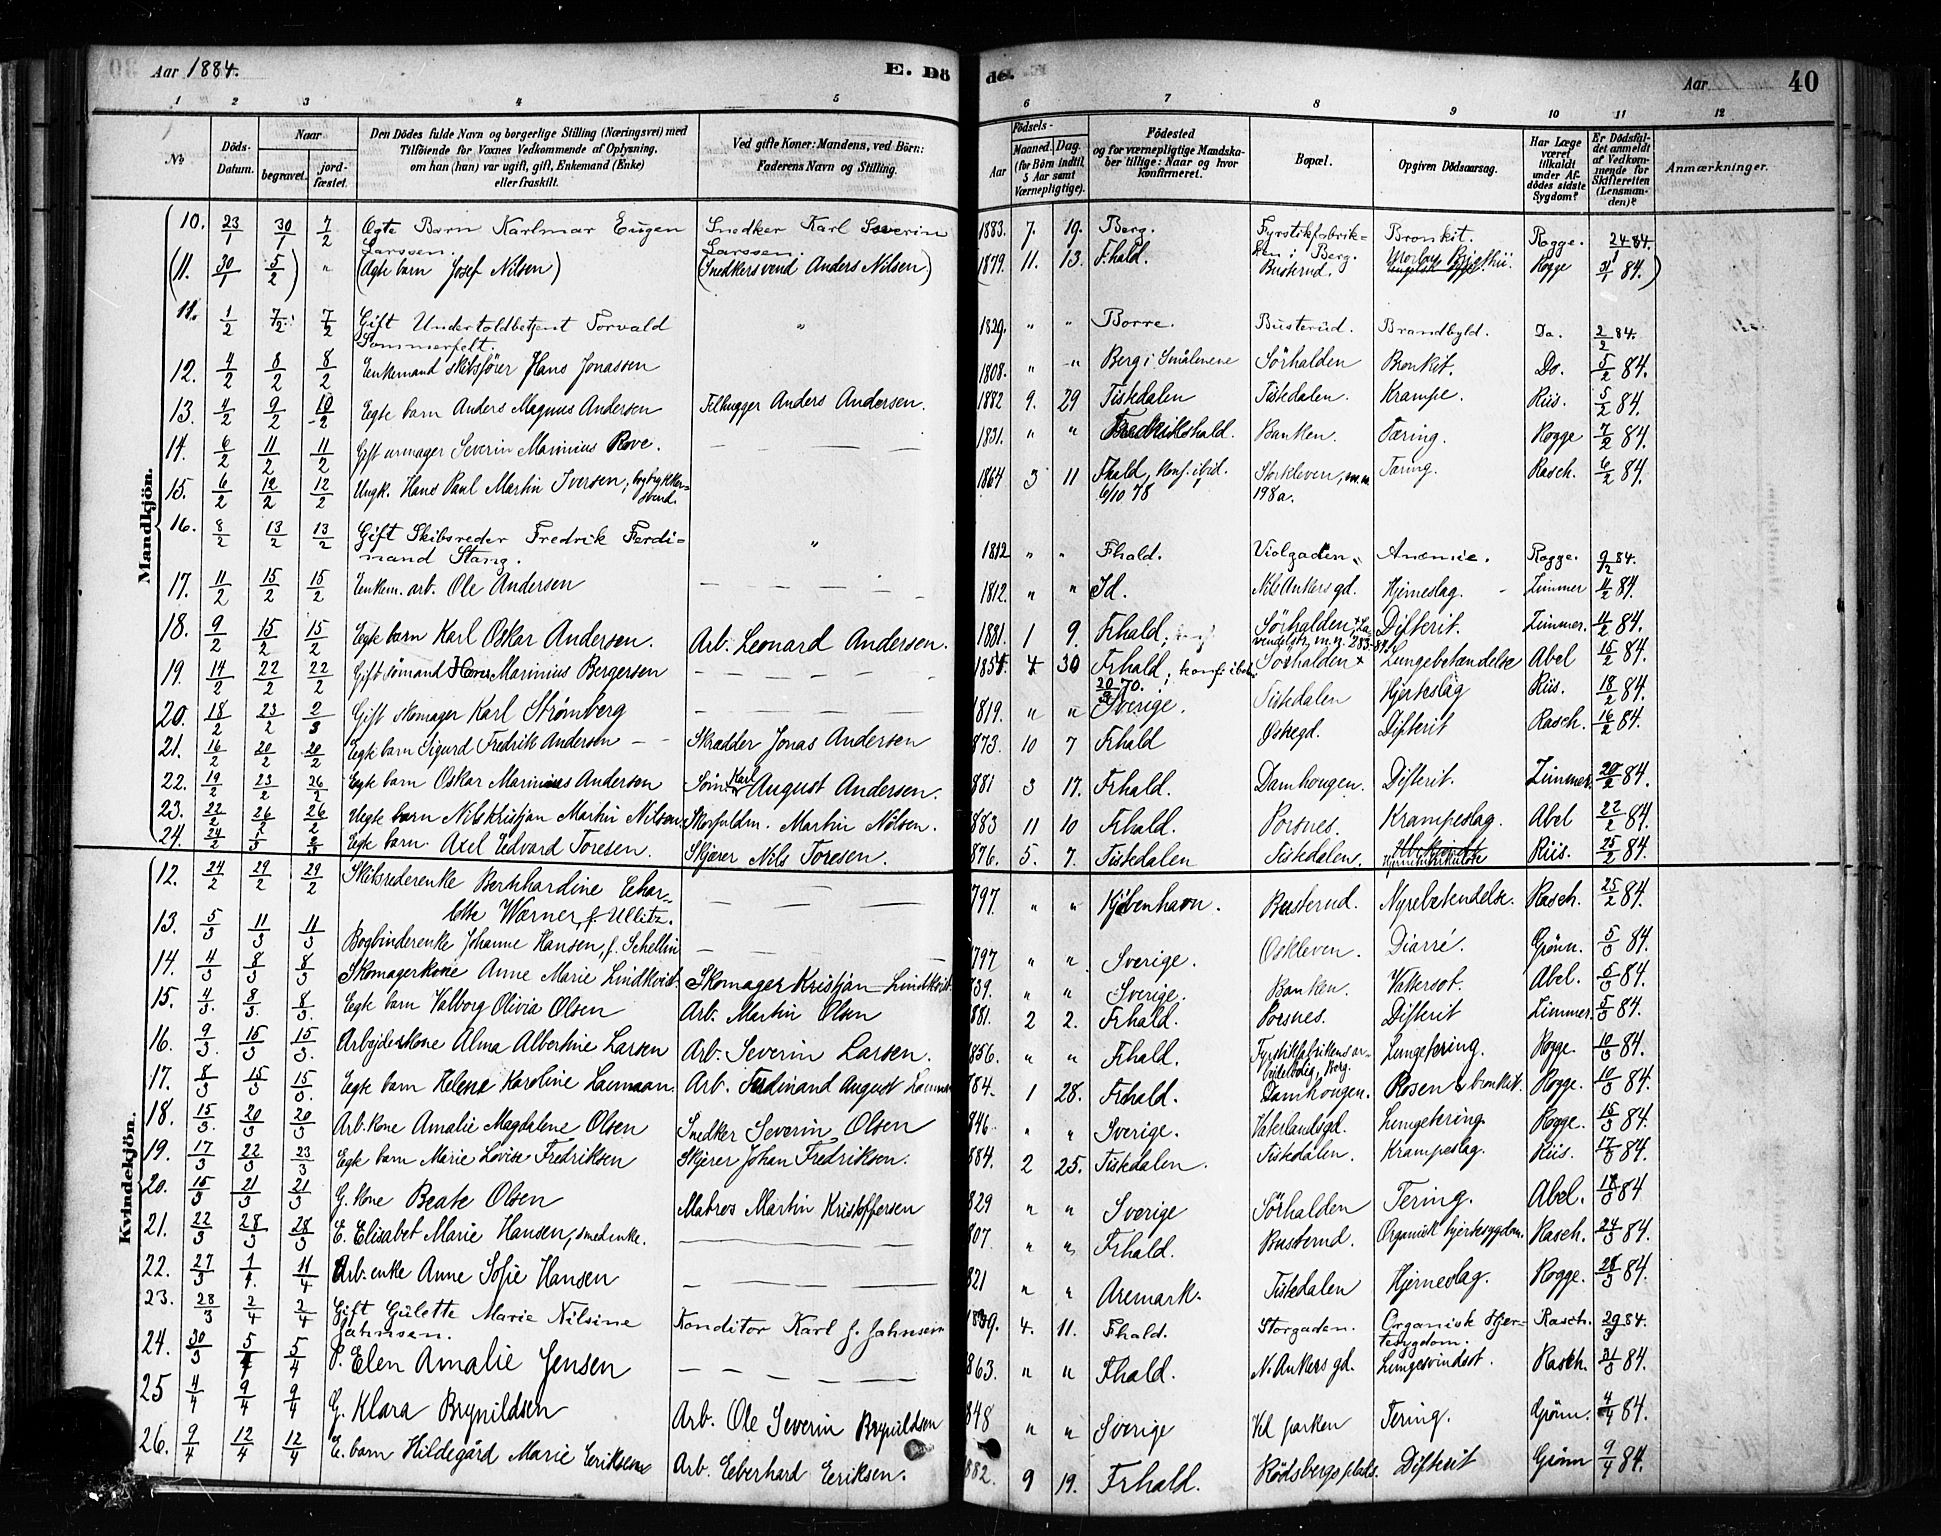 Aar 1884. E. Dö de. Aar 40
1 2 3 4 5 6 7 8 9 10 11 12
No Döds-Datum. Naar begravet. jord-fæstet. Den Dödes fulde Navn og borgerlige Stilling (Næringsvei) med Tilföiende for Voxnes Vedkommende af Oplysning, om han (hun) var ugift, gift, Enkemand (Enke) eller fraskilt. Ved gifte Koner: Mandens, ved Börn: Faderens Navn og Stilling. Födsels- Aar Maaned. Dag. (for Börn indtil 5 Aar samt Værnepligtige). Födested og for værnepligtige Mandskaber tillige: Naar og hvor konfirmeret. Bopæl. Opgiven Dödsaarsag. Har Læge været tilkaldt under Afdödes sidste Sygdom? Er Dödsfaldet anmeldt af Vedkommende for Skifteretten (Lensmanden)? Anmærkninger.
Mandkjön.
10. 23/1 30/1 7/2 Ægte Barn Karlmar Eugen Larssen. Snedker Karl Severin Larssen. 1883. 7. 19. Berg. Fyrstikfabrikken i Berg. Bronkit. Rogge. 24/1 84.
(11. 30/1 5/2) " (Ægte barn Josef Nilsen) (Snedkersvend Anders Nilsen) 1879. 11. 13. Fhald. Busterud. Morbus Brigthii. Rogge 31/1 84.)
11. 1/2 7/2 7/2 Gift Undertoldbetjent Torvald Sommerfelt. " 1829. " " Borre. Busterud. Brandbyld. Do. 2/2 84.
12. 4/2 8/2 8/2 Enkemand skibsfører Hans Jonassen 1808. " " Berg i Smålenene Sörhalden Bronkit. Do. 5/2 84.
13. 4/2 9/2 10/2 Egte barn Anders Magnus Andersen Filhugger Anders Andersen. 1882 9. 29 Tistedalen Tistedalen. Krampe. Riis. 5/2 84.
14. 6/2 11/2 11/2 Gift urmager Severin Marinius Rove. 1831. " " Fredrikshald. Banken. Tæring. Rogge 7/2 84.
15. 6/2 12/2 12/2 Ungk. Hans Paul Martin Iversen, bogtrykkersvend. 1864 3 11 Fhald, konf. ibid. 6/10 78 Storkleven, m.n. 198a. Tæring. Rasch. 6/2 84.
16. 8/2 13/2 13/2 Gift Skibsreder Fredrik Ferdinand Stang. " 1812 " " Fhald. Violgaden. Anæmie. Rogge. 9/2 84.
17. 11/2 15/2 15/2 Enkem. arb. Ole Andersen 1812. " " Id. Nils Ankers gd. Hjerneslag. Zimmer 11/2 84.
18. 9/2 15/2 15/2 Egte barn Karl Oskar Andersen. Arb. Leonard Andersen. 1881. 1 9. Frhald. Sörhalden Difterit. Zimmer. 11/2 84.
19. 14/2 22/2 22/2 Gift sömand Hans Marinius Bergersen 1854. 4 30 Frhald, konf. ibid. 20/3 70. Sörhalden Lungebetændelse Abel 15/2 84.
20. 18/2 23/2 2/3 Gift skomager Karl Strømberg 1819. " " Sverige. Tistedalen Hjerteslag Riis. 18/2 84.
21. 16/2 20/2 20/2 Egte barn Sigurd Fredrik Andersen Skrædder Jonas Andersen 873. 10 7 Frhald Øskegd. Difterit Rasch. 16/2 84.
22. 19/2 23/2 26/2 Egte barn Oskar Marinius Andersen Söm. Karl August Andersen. 881 3 17. Frhald. Damhougen. Difterit. Zimmer. 20/2 84.
23. 22/2 26/2 26/2 Uegte barn Nils Kristjan Martin Nilsen Martin Nilsen. 883 11 10 Frhald. Porsnes. Krampeslag. Abel 22/2 84.
24. 24/2 1/3 2/3 Egte barn Axel Edvard Toresen. Skjærer Nils Toresen. 876. 5. 7. Tistedalen Tistedalen. Riis. 25/2 84.
Kvindekjön.
12. 24/2 29/2 29/2 Skibsrederenke Bernhardine Charlotte Wærner, f. Ullitz. 797. " " Kjöbenhavn. Busterud. Nyrebetændelse. Rasch. 25/2 84.
13. 5/3 11/3 11/3 Bogbinderenke Johanne Hansen, f. Schellin 797 " " Sverige. Oskleven Diarré. Grönn. 5/3 84.
14. 4/3 8/3 8/3 Skomagerkone Anne Marie Lindkvist. Skomager Kristjan Lindkvist. 839. " " Sverige. Banken. Vattersot. Abel. 5/3 84.
15. 4/3 8/3 8/3 Egte barn Valborg Olivia Olsen Arb. Martin Olsen 881. 2 2. Frhald. Porsnes. Difterit Zimmer. 5/3 84.
16. 9/3 15/3 15/3 Arbejderkone Alma Albertine Larsen Arb. Severin Larsen. 856. " " Frhald. Fyrstikfabrikens arbeiderbolig, Berg. Lungetæring. Rogge. 10/3 84.
17. 8/3 15/3 15/3 Egte barn Helene Karoline Laumann. Arb. Ferdinand August Laumann 884. 1 28. Frhald. Damhougen. Rosen & bronkit. Rogge. 10/3 84.
18. 15/3 20/3 20/3 Arb.kone Amalie Magdalene Olsen Snedker Severin Olsen 846 " " Sverige. Vaterlandsgd. Lungetæring. Rogge. 15/3 84.
19. 17/3 22/3 23/3 Egte barn Marie Lovise Fredriksen Skjærer Johan Fredriksen. 884. 2 25. Tistedalen. Tistedalen. Krampeslag. Riis. 17/3 84.
20. 15/3 21/3 21/3 G. kone Beate Olsen Matros Martin Kristoffersen 829 " " Sverige Sörhalden Tering. Abel. 18/3 84
21. 22/3 28/3 28/3 E. Elisabet Marie Hansen, smedenke. 807. " " Frhald. Busterud. Organisk hjertesygdom. Rasch. 24/3 84.
22. 27/3 1/4. 11/4 Arb.enke Anne Sofie Hansen 821 " " Aremark. Tistedalen Hjerneslag. Rogge. 28/3 84.
23. 28/3 2/4 2/4 Gift Gülette Marie Nilsine Jahnsen. Konditor Karl J. Jahnsen 1839. 4. 11. Fhald. Storgaden. Organisk Hjertesygdom. Rasch. 29/3 84.
24. 30/3 5/4 5/4 P. Elen Amalie Jensen 863. " " Fhald. N. Ankers gd. Lungesvindsot. Rasch. 31/3 84.
25 4/4 9/4 9/4 G. Klara Brynildsen Arb. Ole Severin Brynildsen 848 " " Sverige Ved parken Tering. Grönn. 4/4 84.
26. 9/4 12/4 12/4 E. barn Hildegård Marie Eriksen Arb. Eberhard Eriksen. 882. 9 19. Frhald. Rödsbergs plads. Difterit Grönn 9/4 84.